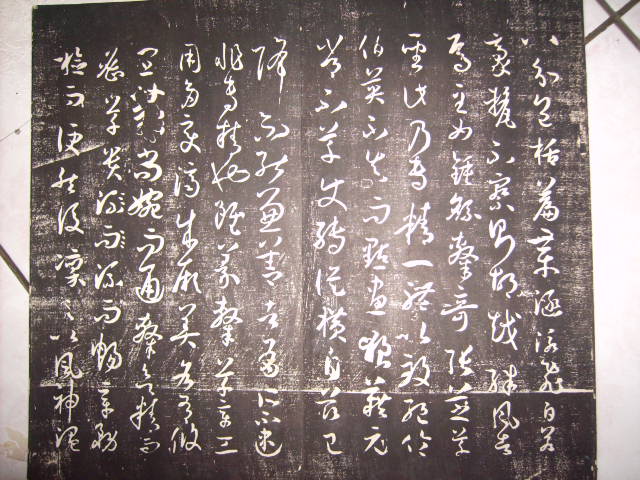 八分包括篇章涵泳飛白若
豪釐不察則胡越殊風者
焉至如鍾繇隸奇張芝草
聖此乃專精一體以致絕倫
伯英不真而點畫狼藉元
常不草使轉縱橫自茲已
降不能兼善者有所不逮
非專精也雖篆隸草章工
用多變濟成厥美各有攸
宜篆尚婉而通隸欲精而
密草貴流而暢章務
檢而便然後凜之以風神溫